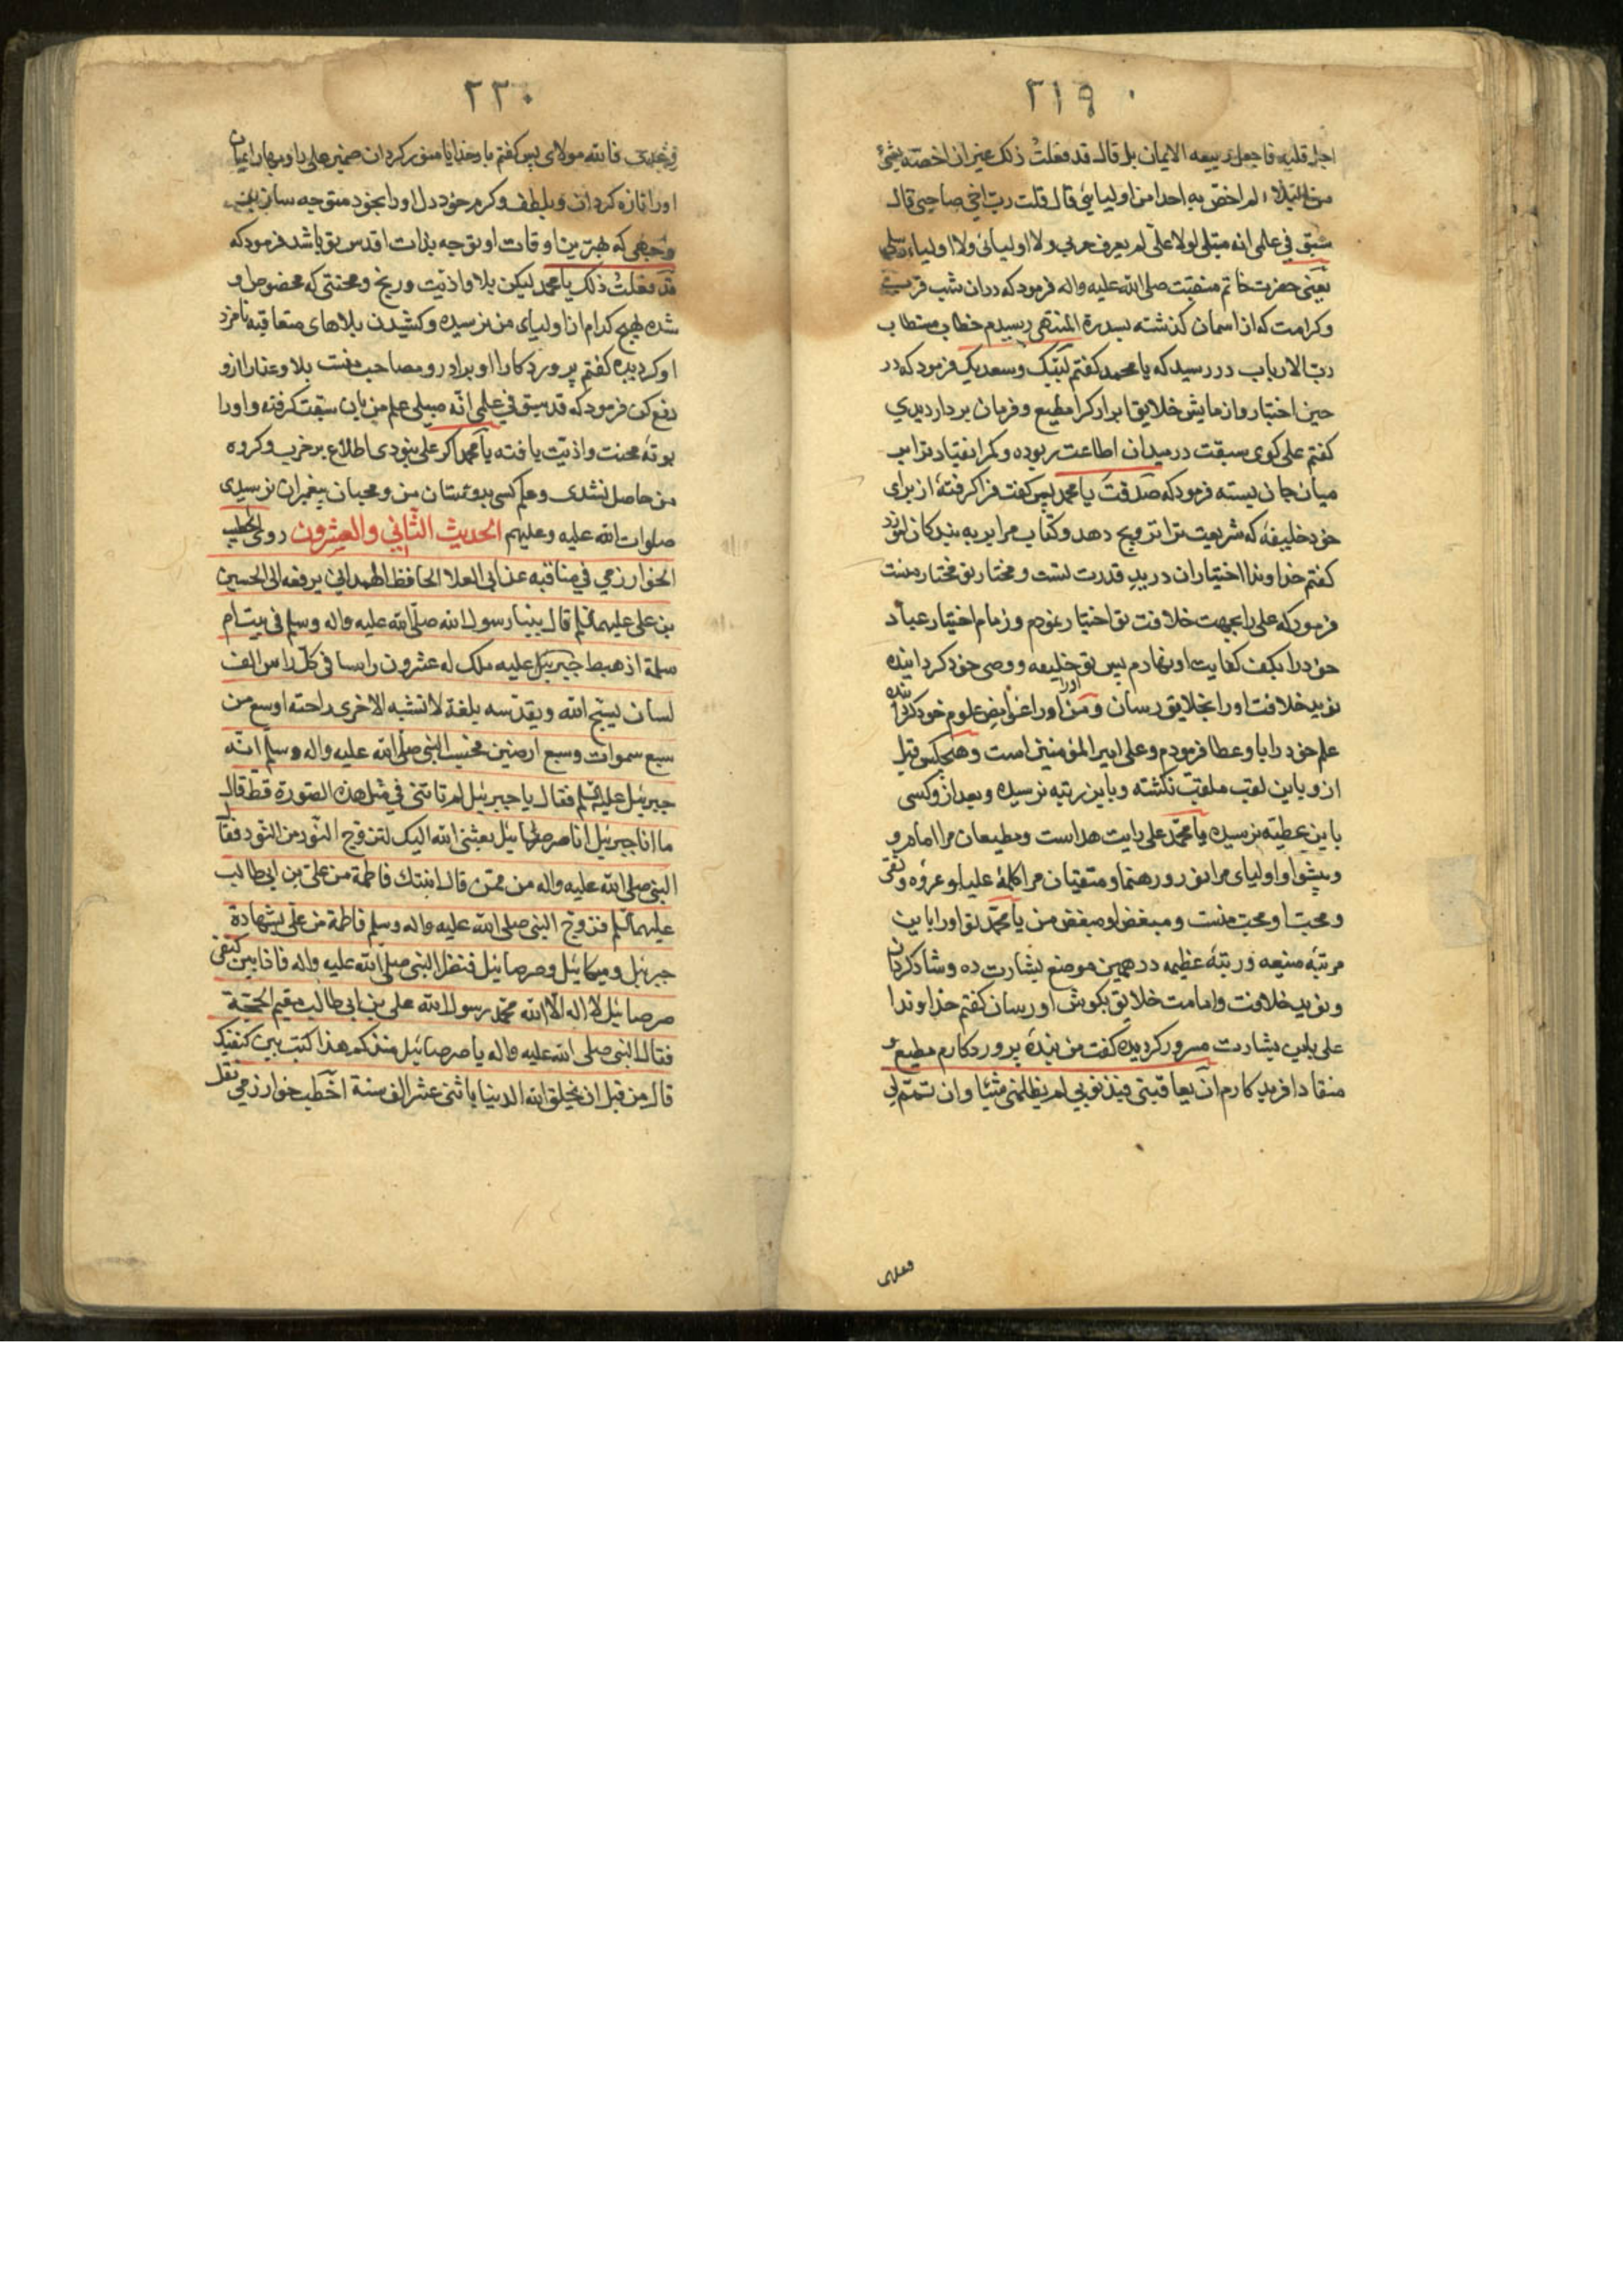 ۲۱۹
اجل قلبه فاجعل ربیعه الایمان بل قال قد فعلتُ ذلک غیر ان اخصّه بشیٔ
من البلاء لم اخصّ به احدا من اولیائی قال قلت ربّ اخی صاحبی قال
سبق فی علمی انه مبتلی لولا علیّ لم یعرف حزبی ولا اولیائی ولا اولیاء رسلی
یعنی حضرت خاتم منقبت صلی الله علیه واله فرمود که دران شب قرب
وکرامت که از اسمان گذشته بسدرة المنتهی رسیدم خطاب مستطاب
ربّ الارباب در رسید که یا محمد گفتم لبّیک وسعدیک فرمود که در
حین اختبار وازمایش خلایق ابرار کرا مطیع وفرمان بردار دیدی
گفتم علی کوی سبقت در میدان اطاعت ربوده وکمر انقیاد ترا بر
میان جان بسته فرمود که صدقت یا محمد پس گفت فرا گرفتهٔ از برای
خود خلیفهٔ که شریعت ترا ترویج دهد وکتاب مرا بر به بندکان
گفتم خداوندا اختیار ان در ید قدرت تست ومختار تو مختار منست
فرمود که علی را بجهت خلافت تو اختیار نمودم وزمام اختیار عباد
خود را بکف کفایت او نهادم پس تو خلیفه ووصی خود کردانیده
نوید خلافت او را بخلایق رسان ومن او را غرایض علوم خود
علم خود را باو عطا فرمودم وعلی امیر المؤمنین است وهیچکس قبل
از و باین لقب ملقب نکشته وباین رتبه نرسیده وبعد از و کسی
باین عطیّه نرسیده یا محمّد علی رایت هداست ومطیعان مرا امام و
وپیشوا واولیای مرا نور ورهنما ومتقیان مرا کلمهٔ علیا وعروه وثقی
ومحبّ او محبّ منست ومبغض او مبغض من یا محمّد تو او را باین
مرتبهٔ منیعه ورتبهٔ عظیمه در همین موضع بشارت ده وشاد کردان
ونوید خلافت وامامت خلایق بکوش او رسان گفتم خداوندا
علی باین بشارت مسرور کردیده گفت من بندهٔ پروردکارم مطیع و
منقاد افریدکارم ان یعاقبنی فبذنوبی لم یظلمنی شیئا وان تمّم لی
فعلی
۲۲۰
وعدی فالله مولای پس گفتم بار خدایا منور کردان ضمیر علی را وبهار ایمان
او را تازه کردان وبلطف وکرم خود دل او را بخود متوجه ساز
وجهی که بهترین اوقات او توجه بذات اقدس تو باشد فرمود که
قد فعلتُ ذلک یا محمد لیکن بلا واذیّت ورنج ومحنتی که مخصوص او
شده بهیچ کدام از اولیای من نرسیده وکشیدن بلاهای متعاقبه نامزد
او کردیده گفتم پروردکارا او برادر ومصاحب منست بلا وعنا را از و
دفع کن فرمود که قد سبق فی علمی انّه مبتلی علم من باین سبقت کرفته واو را
بوتهٔ محنت واذیّت یافته یا محمد اکر علی نبودی اطلاع بر حزب وکروه
من حاصل نشدی وعلم کسی بدوستان من ومحبان پیغمبران نرسیدی
صلوات الله علیه وعلیهم الحدیث الثّانی والعشرون روی الخطیب
الخوارزمی فی مناقبه عن ابی العلا الحافظ الهمدانی یرفعه الی الحسین
بن علی علیهما السّلم قال بینا رسول الله صلی الله علیه واله وسلم فی بیت ام
سلمة اذ هبط جبرییل علیه ملک له عشرون راسا فی کلّ راس الف
لسان یسبّح الله ویقدّسه بلغة لا تشبه الاخری راحته اوسع من
سبع سموات وسبع ارضین فحسب النبی صلی الله علیه واله وسلم انّه
جبرئیل علیه السّلم فقال یا جبرئیل لم تاتنی فی مثل هذه الصّورة قط قال
ما انا جبرئیل انا صرصائیل بعثنی الله الیک لتزوّج النّور من النّور فقال
النبی صلی الله علیه واله من ممّن قال ابنتک فاطمة من علیّ بن ابی طالب
علیهما السّلم فزوّج النبی صلی الله علیه واله وسلم فاطمة من علیّ بشهادة
جبرئیل ومیکائیل وصرصائیل فنظر النبی صلی الله علیه واله فاذا بین کتفی
صرصائیل لا اله الّا الله محمّد رسول الله علی بن ابی طالب مقیم الحجّة
فقال النبی صلی الله علیه واله یا صرصائیل منذ کم هذا کتب بین کتفیک
قال من قبل ان یخلق الله الدنیا باثنی عشر الف سنة اخطب خوارزمی نقل